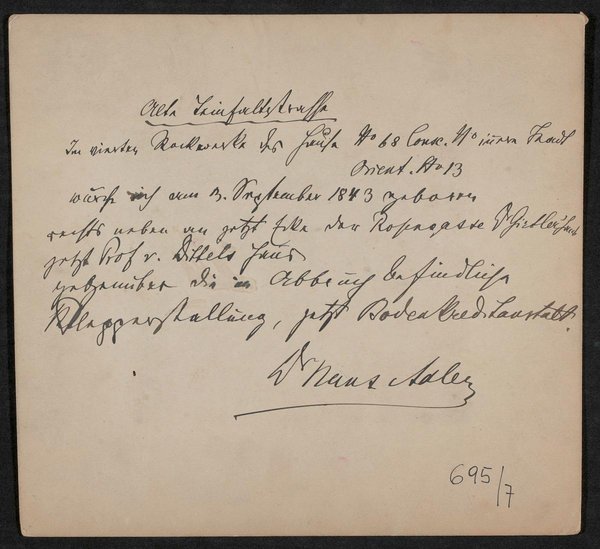 Alte Teinfaltstrasse
Im vierten Stockwerke des Hauses No 68 Cons. No innere Stadt
Orient. No 13
wurde ich am 3. September 1843 geboren
rechts neben an jetzt Ecke der Rosengasse
jetzt Prof v. Dittels Haus
gegenüber die in Abbruch befindliche
Kleppperstallung, jetzt Bodenkreditanstalt.
Dr Hans Adler
695/7